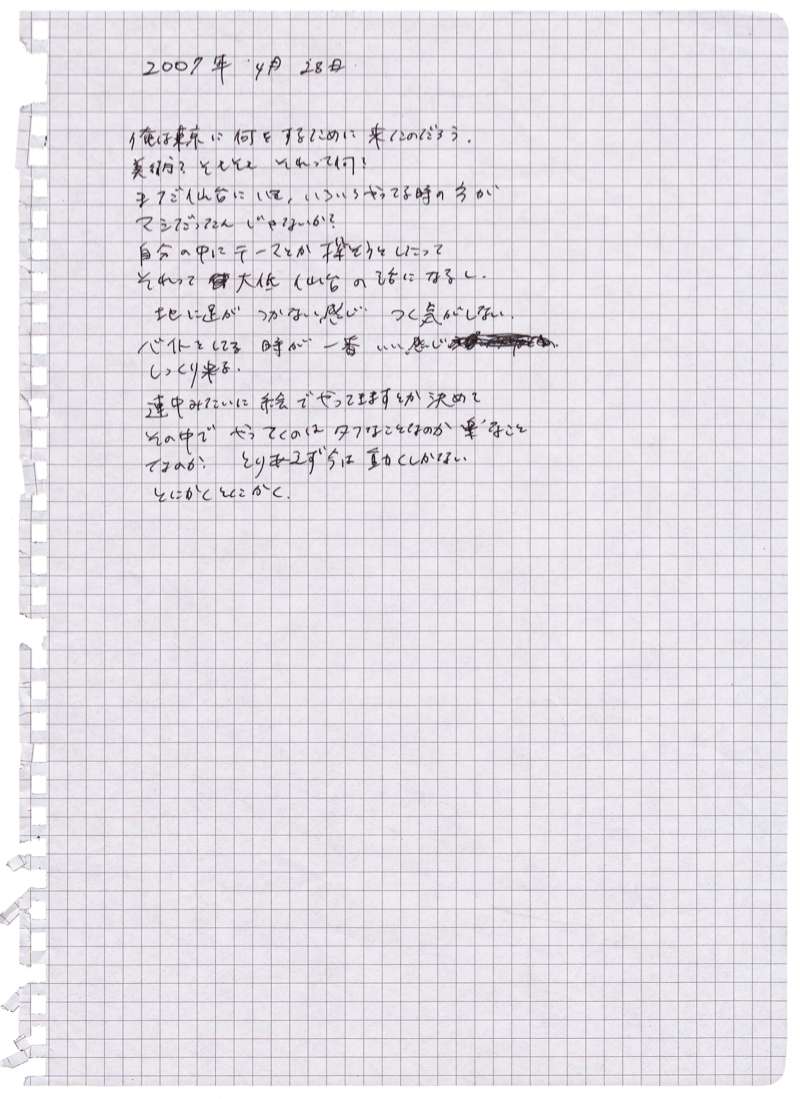 2007年 4月 28日
俺は東京に何をするために来たのだろう.
美術? そもそも それって何?
まだ仙台にいて, いろいろやってる時の方が
マシだったんじゃないか?
自分の中にテーマとか探そうとしたって
それって 大体 仙台の話になるし.
地に足が つかない感じ つく気がしない.
バイトをしてる 時が 一番 いい感じ
しっくり来る.
連中みたいに 絵でやってますとか 決めて
その中で やってくのは タフなことなのか 楽なこと
なのか? とりあえず今は 動くしかない
とにかくとにかく.